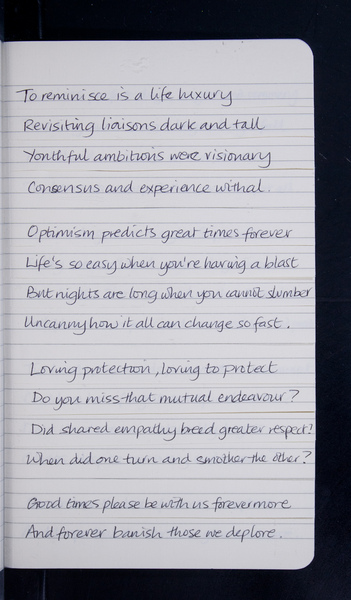 To reminisce is a life luxury
Revisiting liaisons dark and tall
Youthful ambitions were visionary
Consensus and experience withal.
Optimism predicts great times forever
Life's so easy when you're having a blast
But nights are long when you cannot slumber
Uncanny how it all can change so fast.
Loving protection, loving to protect
Do you miss that mutual endeavour?
Did shared empathy breed greater respect?
When did one turn and smother the other?
Good times please be with us forevermore
And forever banish those we deplore.